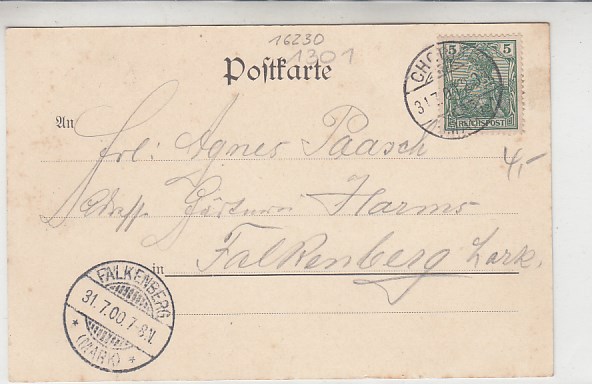 16230
1301
Postkarte
5 5
REICHSPOST
CHO
31.7.
4,-
An
Frl: Agnes Paasch
Adresse Gärtnerei Harms
in Falkenberg Mark.
FALKENBERG
31.7.00.7-8.V.
* (MARK) *